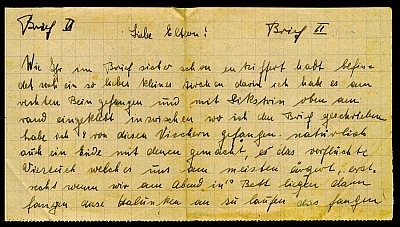 Brief II Liebe Eltern! Brief II
Wie Ihr im Brief sicher schon entziffert habt befin-
det sich ein so liebes kleines darin ich habe es am
rechten Bein gefangen und mit oben am
rand eingeklebt inzwischen wo ich den Brief geschrieben
habe ich von diesen Viechern gefangen. natürlich
auch ein Ende mit denen gemacht, es das verfluchte
Viehzeug welches uns am meisten ärgert, erst
recht wenn wir am Abend in's Bett liegen dann
fangen diese Halunken an zu laufen das fangen